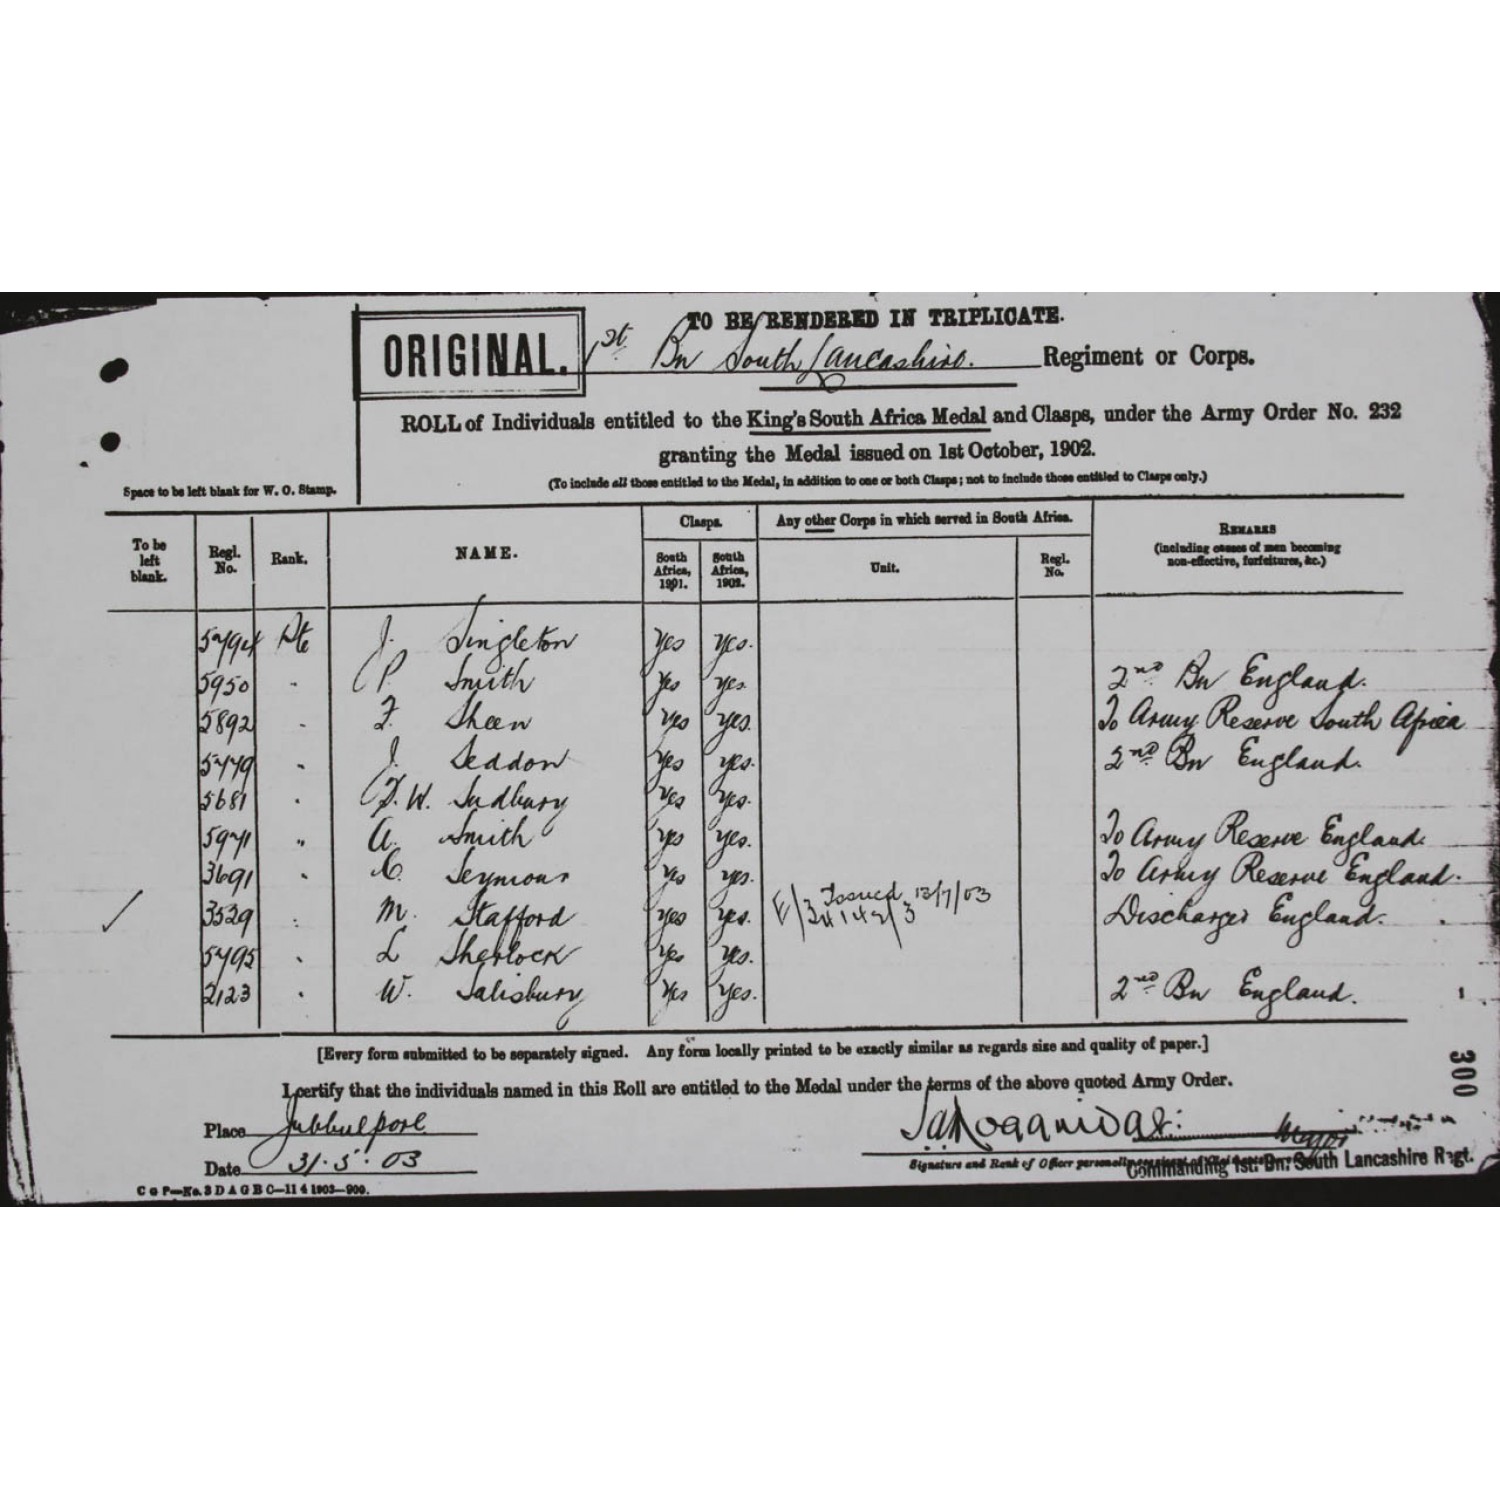 TO BE RENDERED IN TRIPLICATE.
ORIGINAL. 1st Bn South Lancashire. Regiment or Corps.
ROLL of Individuals entitled to the King's South Africa Medal and Clasps, under the Army Order No. 232
granting the Medal issued on 1st October, 1902.
(To include all those entitled to the Medal, in addition to one or both Clasps; not to include those entitled to Clasps only.)
Space to be left blank for W. O. Stamp.
To be left blank. Regl. No. Rank. NAME. Clasps. Any other Corps in which served in South Africa. REMARKS
(including causes of men becoming non-effective, forfeitures, &c.)
South Africa, 1901. South Africa, 1902. Unit. Regl. No.
5794 Pte J. Singleton Yes Yes.
5950 " P. Smith Yes Yes. 2nd Bn England.
5892 " F. Sheen Yes Yes. To Army Reserve South Africa
5479 " J. Seddon Yes Yes. 2nd Bn England.
5681 " F. W. Sudbury Yes Yes.
5971 " A. Smith Yes Yes. To Army Reserve England.
3691 " C. Seymour Yes Yes. To Army Reserve England.
3529 " M. Stafford Yes Yes. Issued 13/7/03 Discharged England.
5495 " L Sherlock Yes Yes.
2123 " W. Salisbury Yes Yes. 2nd Bn England.
[Every form submitted to be separately signed. Any form locally printed to be exactly similar as regards size and quality of paper.]
300
I certify that the individuals named in this Roll are entitled to the Medal under the terms of the above quoted Army Order.
Place Jubbulpore
Major
Date 31.5.03
Signature and Rank of Officer
Commanding 1st. Bn. South Lancashire Regt.
C G P—No. 3 D A G B C—11 4 1903—900.